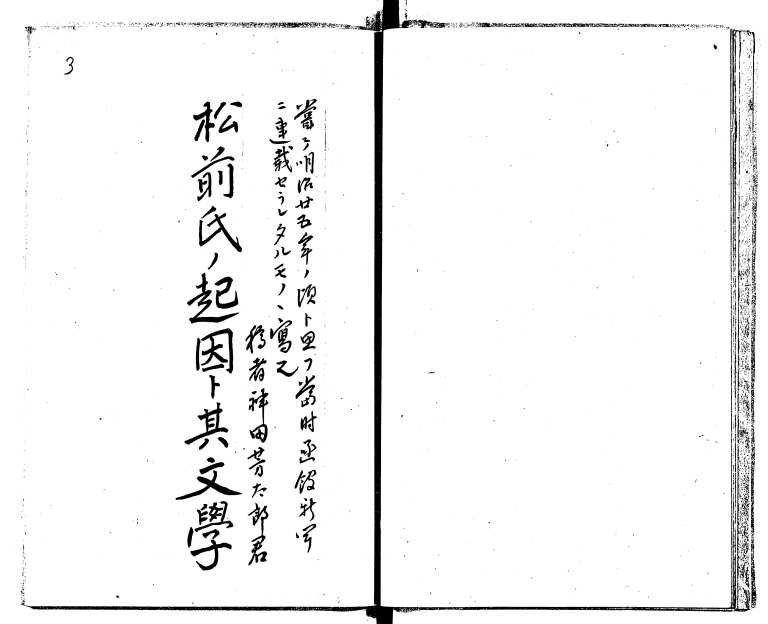 嘗テ明治廿五年ノ頃ト思フ當時函館新聞
ニ連載セラレタルモノヽ寫也
稿者神田芳太郎君
松前氏ノ起因ト其文學
3